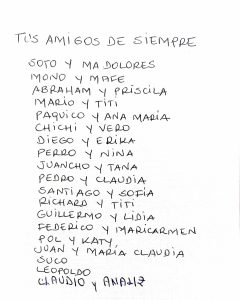 TUS AMIGOS DE SIEMPRE
SOTO Y MA DOLORES
MONO Y MAFE
ABRAHAM Y PRISCILA
MARIO Y TITI
PAQUICO Y ANA MARÍA
CHICHI Y VERO
DIEGO Y ERIKA
PERRO Y NINA
JUANCHO Y TANA
PEDRO Y CLAUDIA
SANTIAGO Y SOFÍA
RICHARD Y TITI
GUILLERMO Y LIDIA
FEDERICO Y MARICARMEN
POL Y KATY
JUAN Y MARÍA CLAUDIA
SUCO
LEOPOLDO
CLAUDIO Y ANALIZ